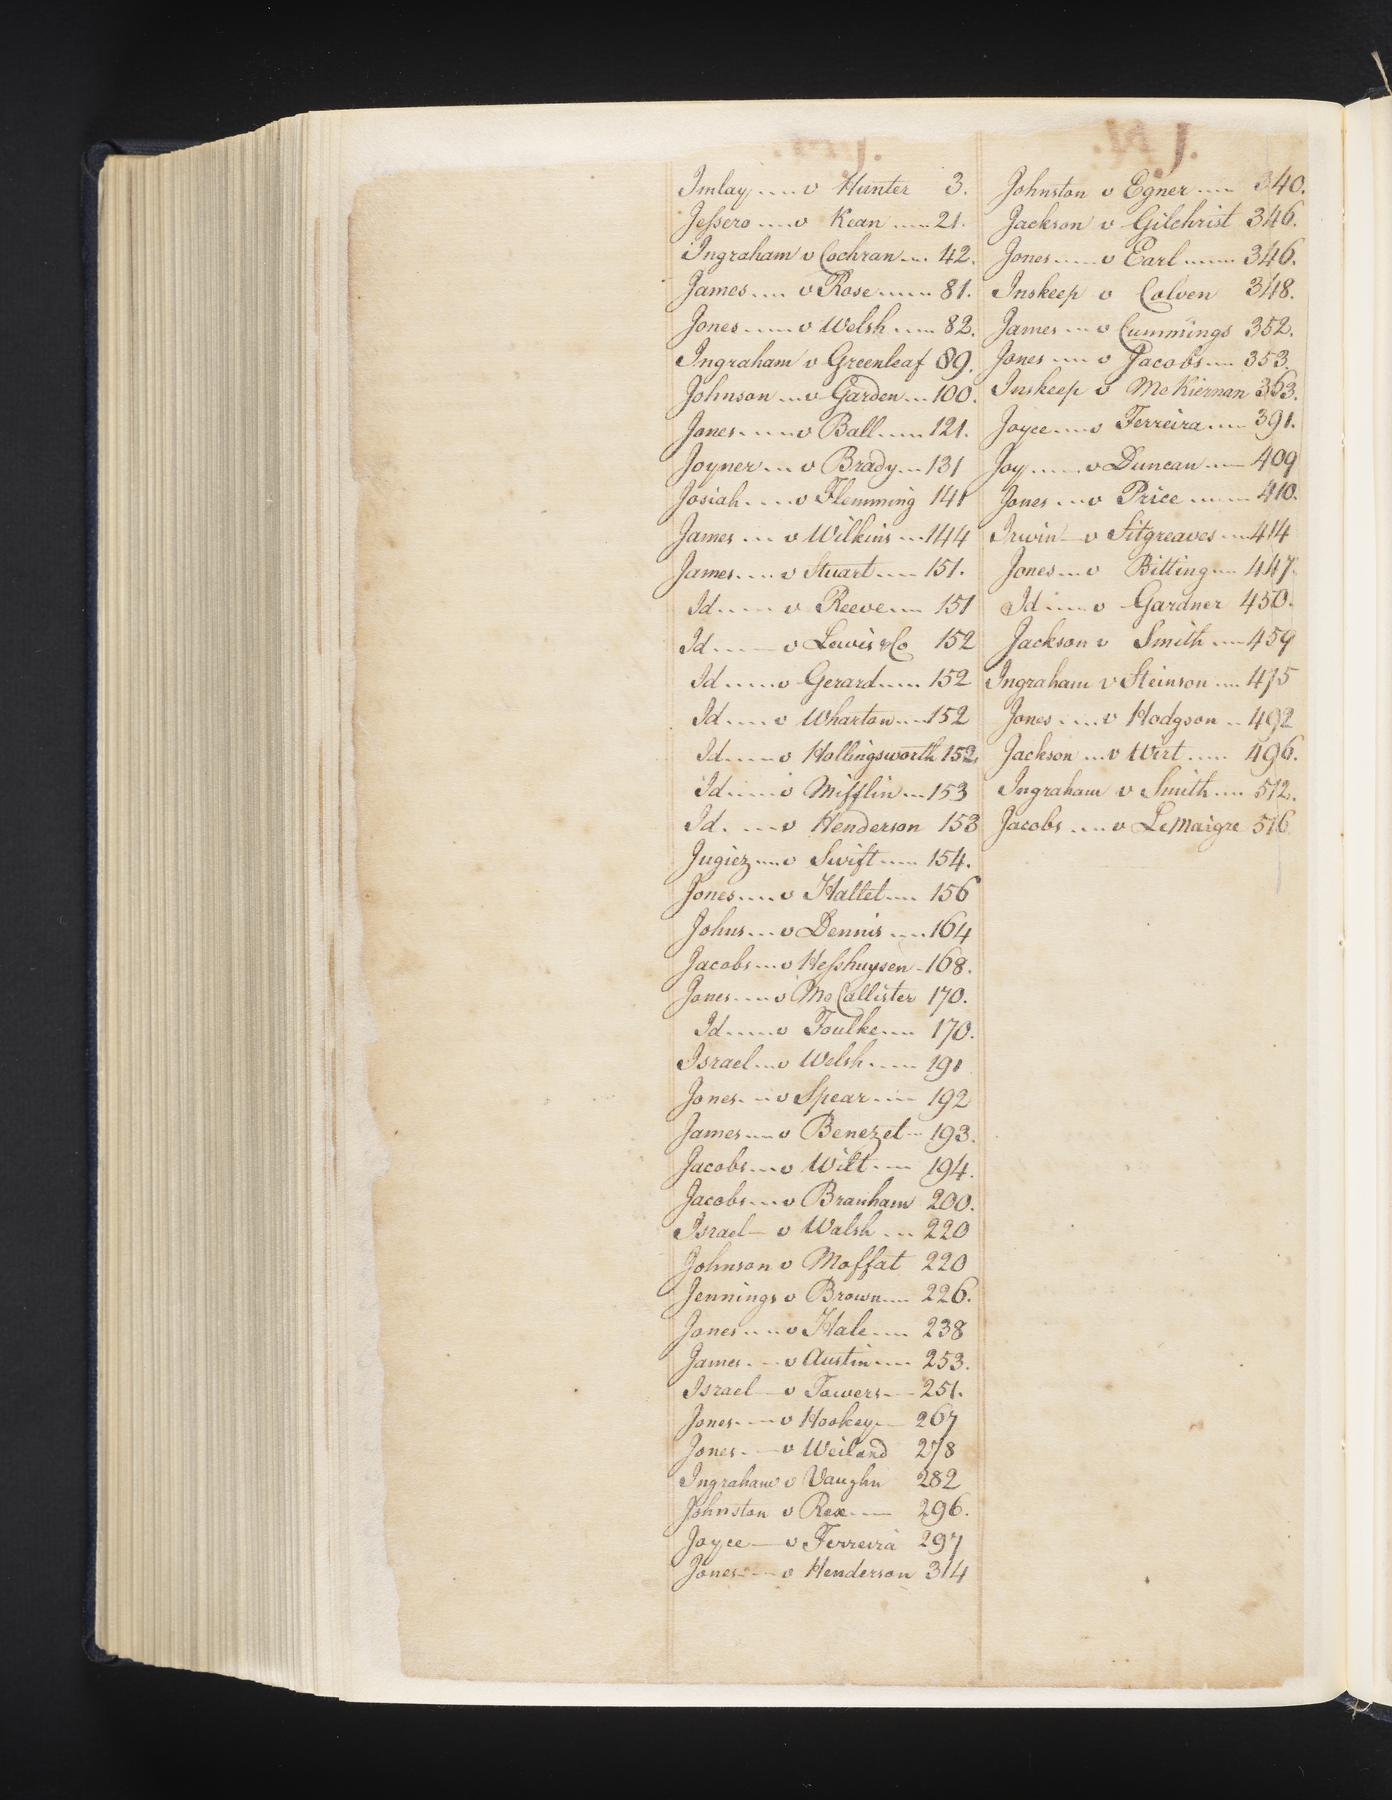 Imlay .... v Hunter 3.
Jessero .... v Kean .... 21.
Ingraham v Cochran ... 42.
James .... v Rose ..... 81.
Jones .... v Welsh .... 82.
Ingraham v Greenleaf 89.
Johnson ... v Garden ... 100.
Jones ..... v Ball ..... 121.
Joyner ... v Brady ... 131
Josiah .... v Flemming 141
James ... v Wilkins ... 144
James .... v Stuart .... 151.
Id ..... v Reeve .... 151
Id .... v Lewis & Co 152
Id ..... v Gerard ..... 152
Id .... v Wharton .... 152
Id .... v Hollingsworth 152.
Id ..... v Mifflin ... 153
Id. ... v Henderson 153
Jugiez ... v Swift .... 154.
Jones .... v Hallet .... 156
Johns ... v Dennis .... 164
Jacobs ... v Hesshuysen - 168.
Jones .... v McCallister 170.
Id ..... v Foulke .... 170.
Israel ... v Welsh ..... 191
Jones ... v Spear .... 192
James ... v Benezet ... 193.
Jacobs ... v Wilt .... 194.
Jacobs ... v Branham 200.
Israel - v Walsh ... 220
Johnson v Moffat 220
Jennings v Brown .... 226.
Jones .... v Hale .... 238
James. - v Austin .... 253.
Israel - v Towers - 251.
Jones. - v Hookey - 267
Jones. - v Weiland 278
Ingraham v Vaughn 282
Johnston v Rex .... 296.
Joyce - v Ferreira 297
Jones - v Henderson 314
Johnston v Egner .... 340.
Jackson v Gilchrist 346.
Jones ..... v Earl ...... 346.
Inskeep v Colven 348.
James ... v Cummings 352.
Jones .... v Jacobs .... 353.
Inskeep v McKiernan 363.
Joyce .... v Ferreira .... 391.
Joy ..... v Duncan .... 409
Jones ... v Price ...... 410.
Irwin - v Sitgreaves ... 414
Jones ... v Bitting ... 447.
Id ..... v Gardner 450.
Jackson v Smith .... 459
Ingraham v Steinson .... 475
Jones .... v Hodgson .. 492
Jackson ... v Wirt ..... 496.
Ingraham v Smith .... 512.
Jacobs .... v LeMaigre 516